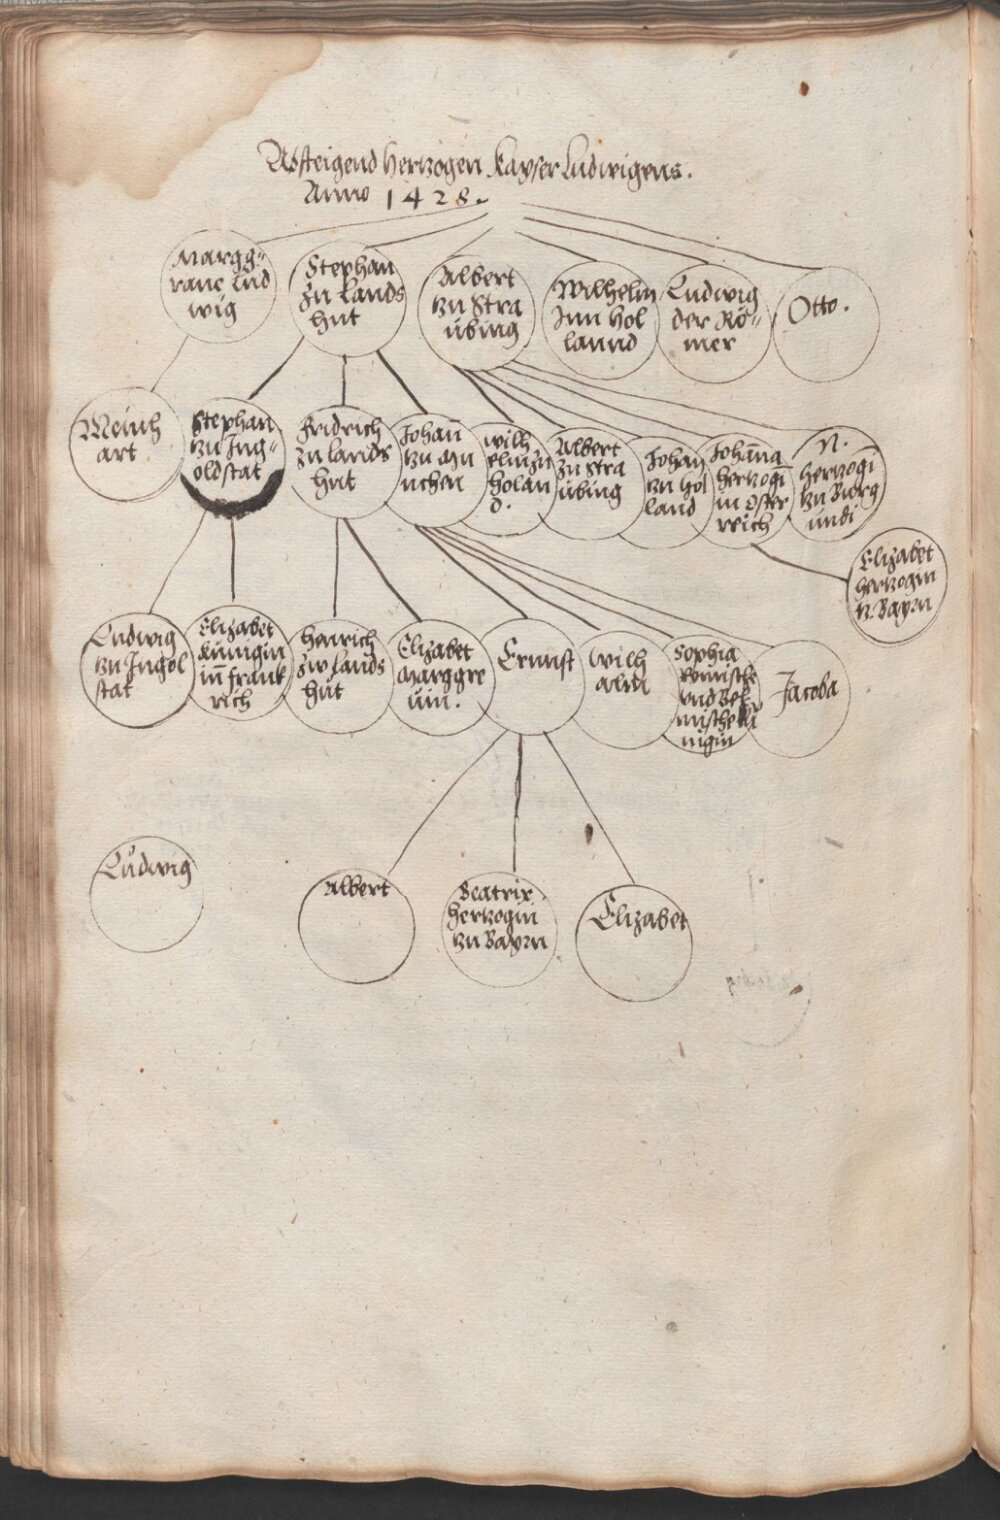 Absteigend hertzogen kayser Ludwigens.
Anno 1428.
Margg-
raue Lud
wig
Stephan
zu Lands
hut
Albert
zu Stra
ubing
Wilhelm
Inn Hol
lannd
Ludwig
der Rö-
mer
Otto.
Meinh
art
Stephan
zu Ing-
oldstat
Fridrich
zu Lands
hut
Johan̄
zu Mu
nchen
Wilh
elm zu
Holan
d.
Albert
zu Stra
ubing
Johan
zu Hol
land
Johan̄a
hertzogī
in Oster
reich
N.
hertzogī
zu Burg
undi
Elizabet
hertzogin
zu Bayrn
Ludwig
zu Ingol
stat
Elizabet
künigin
in̄ Frank
rich
Hainrich
zw Lands
hut
Elizabet
Marggre
uin.
Ernnst
Wilh
alm
Sophia
Romische
vnd Beh
mische kü
nigin
Jacoba
Ludwig
Albert
Beatrix
hertzogin
zu Bayrn
Elizabet